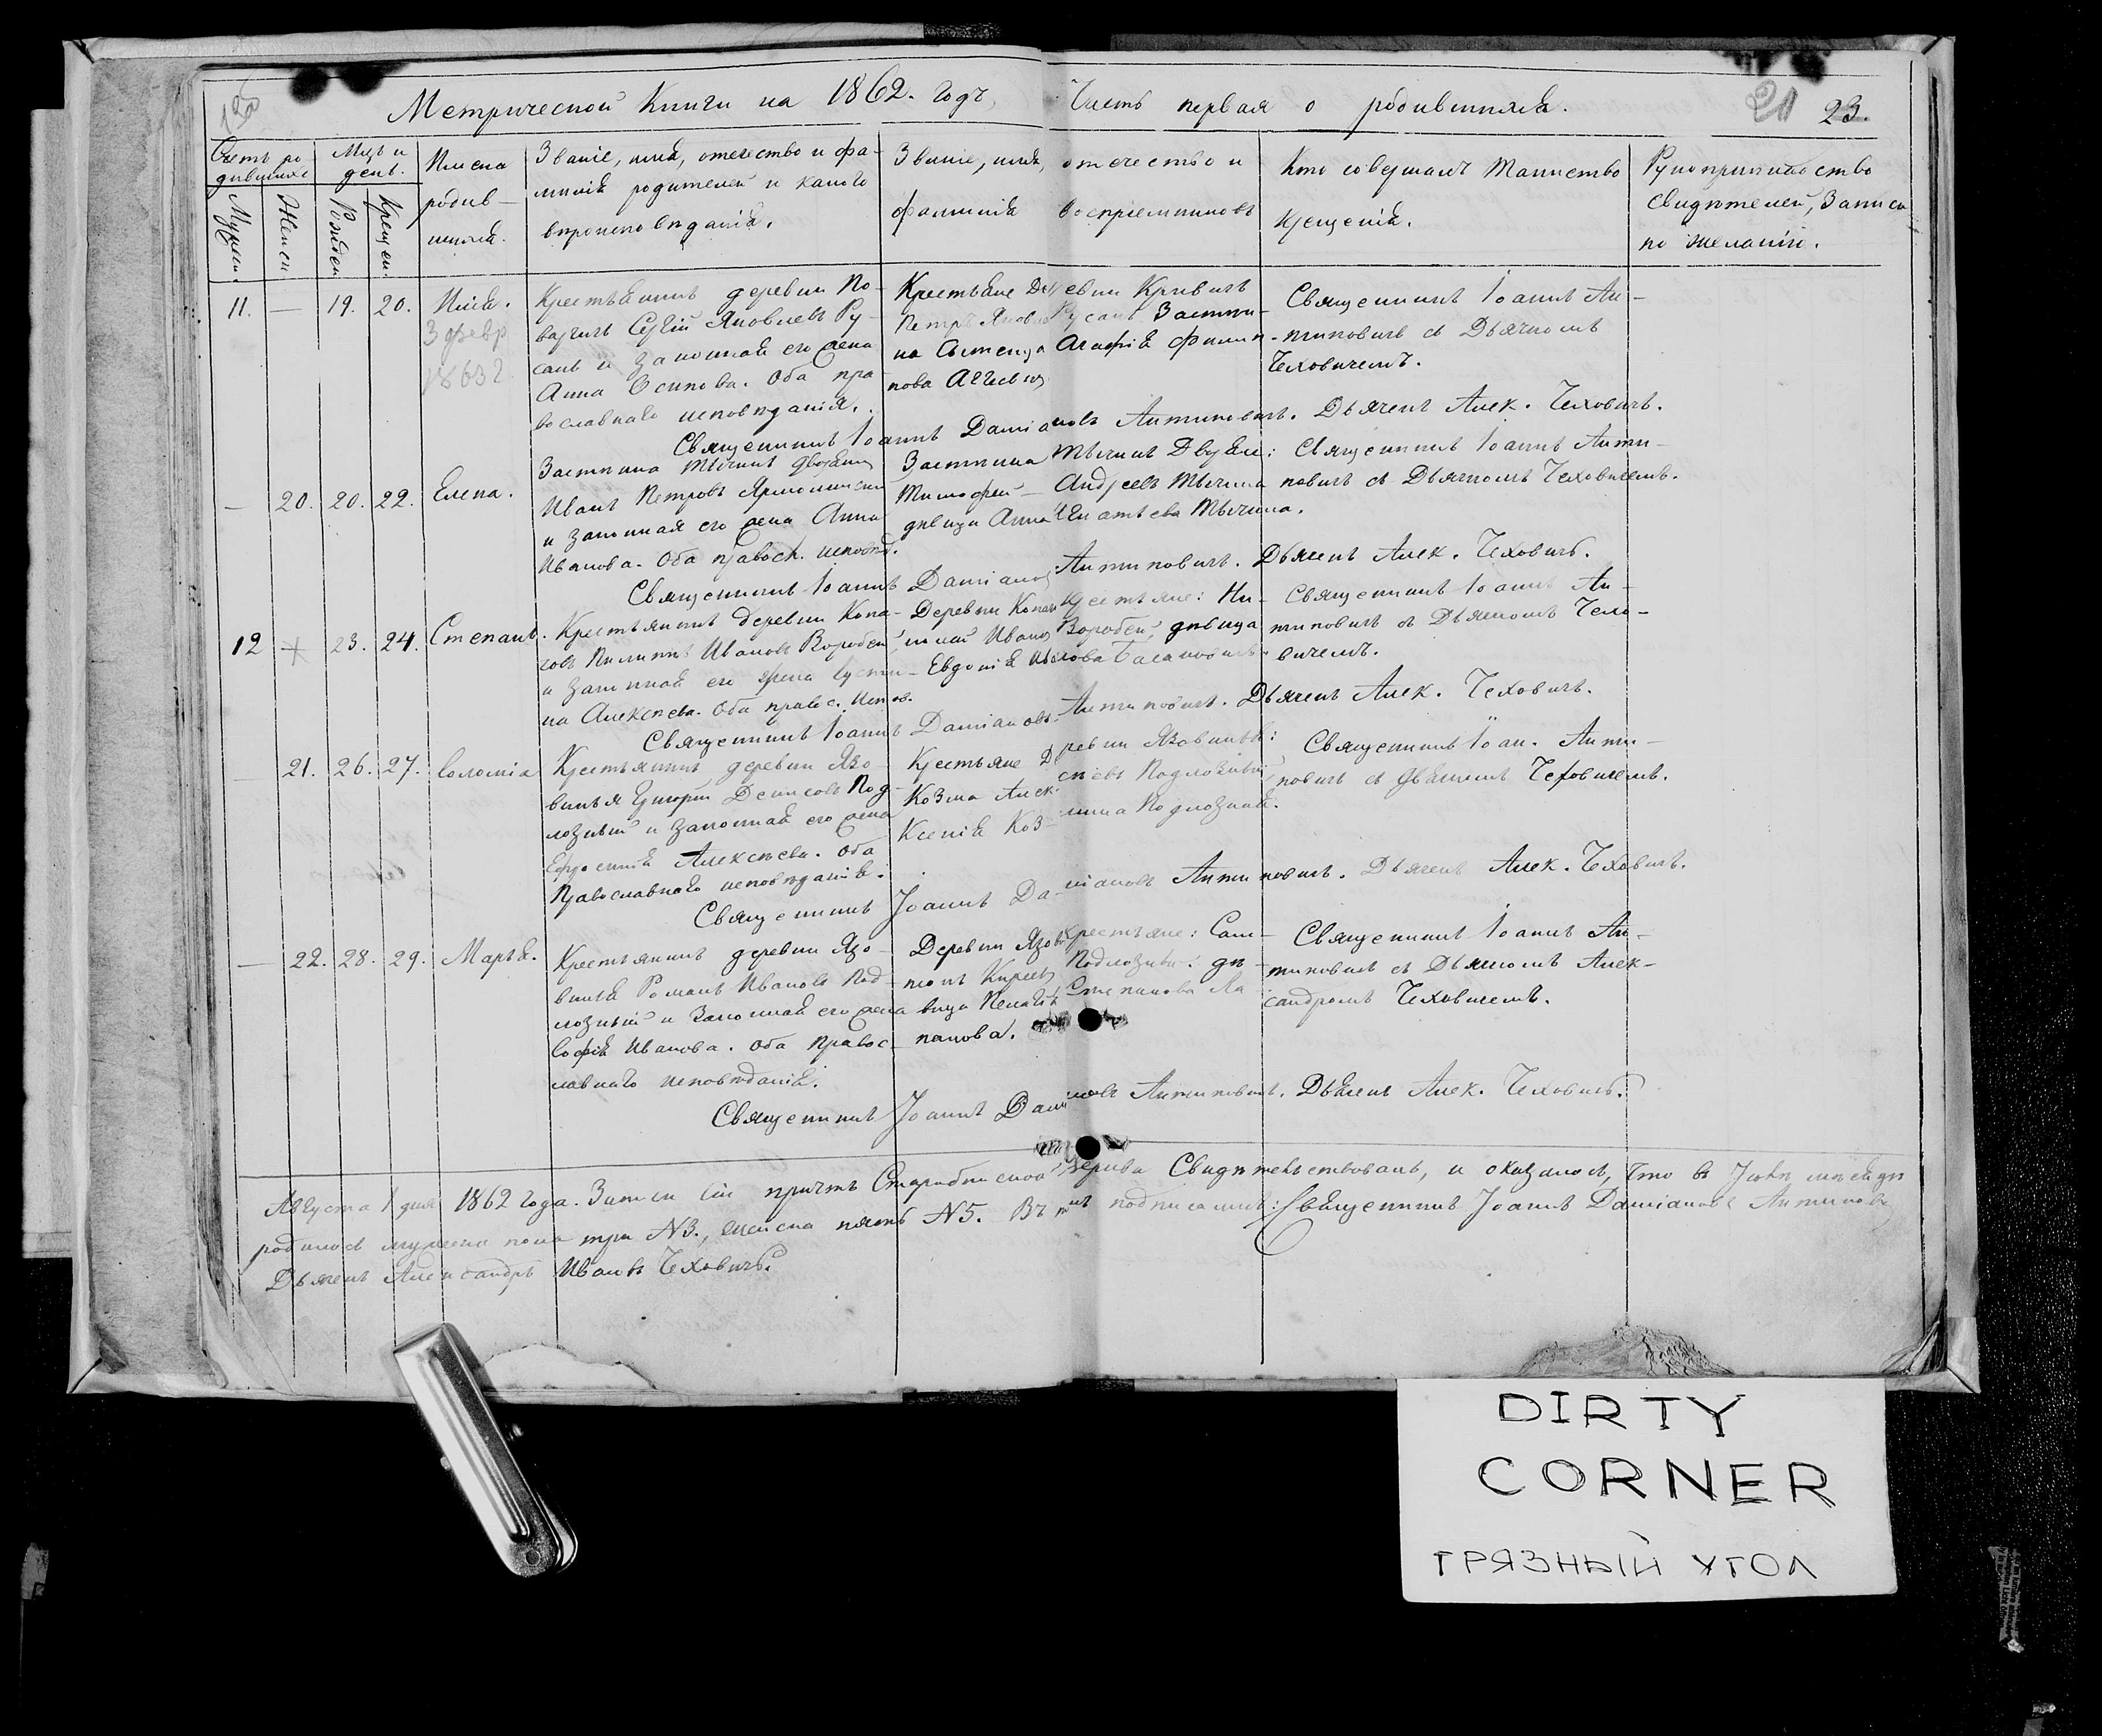 Метрической Книги на 1862. годъ, Часть первая о родившихся. 21 23.
Счетъ родившихся
Мужеск.
Женск.
Мцъ и день.
Рожден.
Крещен.
Имена
родив-
шихся.
Званіе, имя, отечество и фа-
милія родителей и какого
вѣроисповѣданія.
Званіе, имя, отечество и
фамилія воспріемниковъ
Кто совершалъ Таинство
крещенія.
Рукоприкладство
свидѣтелей, Записи
по желанію.
11. — 19. 20. Илія.
3 февр
1863 г.
Крестьянинъ деревни По-
варчичъ Сергій Яковлевъ Ру-
санъ и законная его жена
Анна Осипова. Оба пра-
вославнаго исповѣданія.
Крестьяне Деревни Кривичъ
Петръ Яковлевъ Русанъ Застѣн-
Агафія Филип-
пова
Священникъ Іоаннъ Ан-
типовичъ съ Дьячкомъ
Чеховичемъ.
Священникъ Іоаннъ Даміановъ Антиповичъ. Дьячекъ Алек. Чеховичъ.
— 20. 20. 22. Елена.
Застѣнка Мычинъ Дворянинъ
Иванъ Петровъ
и законная его жена Анна
Иванова. Оба правосл. исповѣд.
Застѣнка Мычинъ Дворяне:
Тимофей Андреевъ Мычка
дѣвица Анна Игнатьева Мычка.
Священникъ Іоаннъ Анти-
повичъ съ Дьячкомъ Чеховичемъ.
Священникъ Іоаннъ Даміановъ Антиповичъ. Дьячекъ Алек. Чеховичъ.
12 + 23. 24. Степанъ.
Крестьянинъ деревни Копа-
Филиппъ Ивановъ Воробей
и законная его жена Іусти-
на Алексѣева. Оба правос. испов.
Деревни крестьяне: Ни-
колай Ивановъ Воробей, дѣвица
Евдокія
Священникъ Іоаннъ Ан-
типовичъ съ Дьячкомъ Чехо-
вичемъ.
Священникъ Іоаннъ Даміановъ Антиповичъ. Дьячекъ Алек. Чеховичъ.
— 21. 26. 27. Соломія
Крестьянинъ деревни Язо-
винья Григорій Денисовъ Под-
лозный и законная его жена
Ефросинія Алексѣева. Оба
Православнаго исповѣданія.
Крестьяне Деревни Язовинья:
Козма Алексѣевъ Подлозный,
Ксенія Козмина Подлозная.
Священникъ Іоан. Анти-
повичъ съ Дьячкомъ Чеховичемъ.
Священникъ Іоаннъ Даміановъ Антиповичъ. Дьячекъ Алек. Чеховичъ.
— 22. 28. 29. Марія.
Крестьянинъ деревни Язо-
винья Романъ Ивановъ Под-
лозный и Законная его жена
Софія Иванова. Оба Правос-
лавнаго исповѣданія.
Деревни Крестьяне: Сам-
Подлозный: дѣ-
вица Пелагія Степанова Ла-
панова.
Священникъ Іоаннъ Ан-
типовичъ съ Дьячкомъ Алек-
сандромъ Чеховичемъ.
Священникъ Іоаннъ Даміановъ Антиповичъ. Дьячекъ Алек. Чеховичъ.
Августа 1 дня 1862 года. Записи сіи причтъ Старобинской Церкви Свидѣтельствовалъ, и оказалось, что въ Іюлѣ мѣсяцѣ
родилось мужеска пола три N 3., женска пять N 5. Въ томъ подписались: Священникъ Іоаннъ Даміановъ Антиповичъ
Дьячекъ Александръ Ивановъ Чеховичъ.
DIRTY
CORNER
ГРЯЗНЫЙ УГОЛ